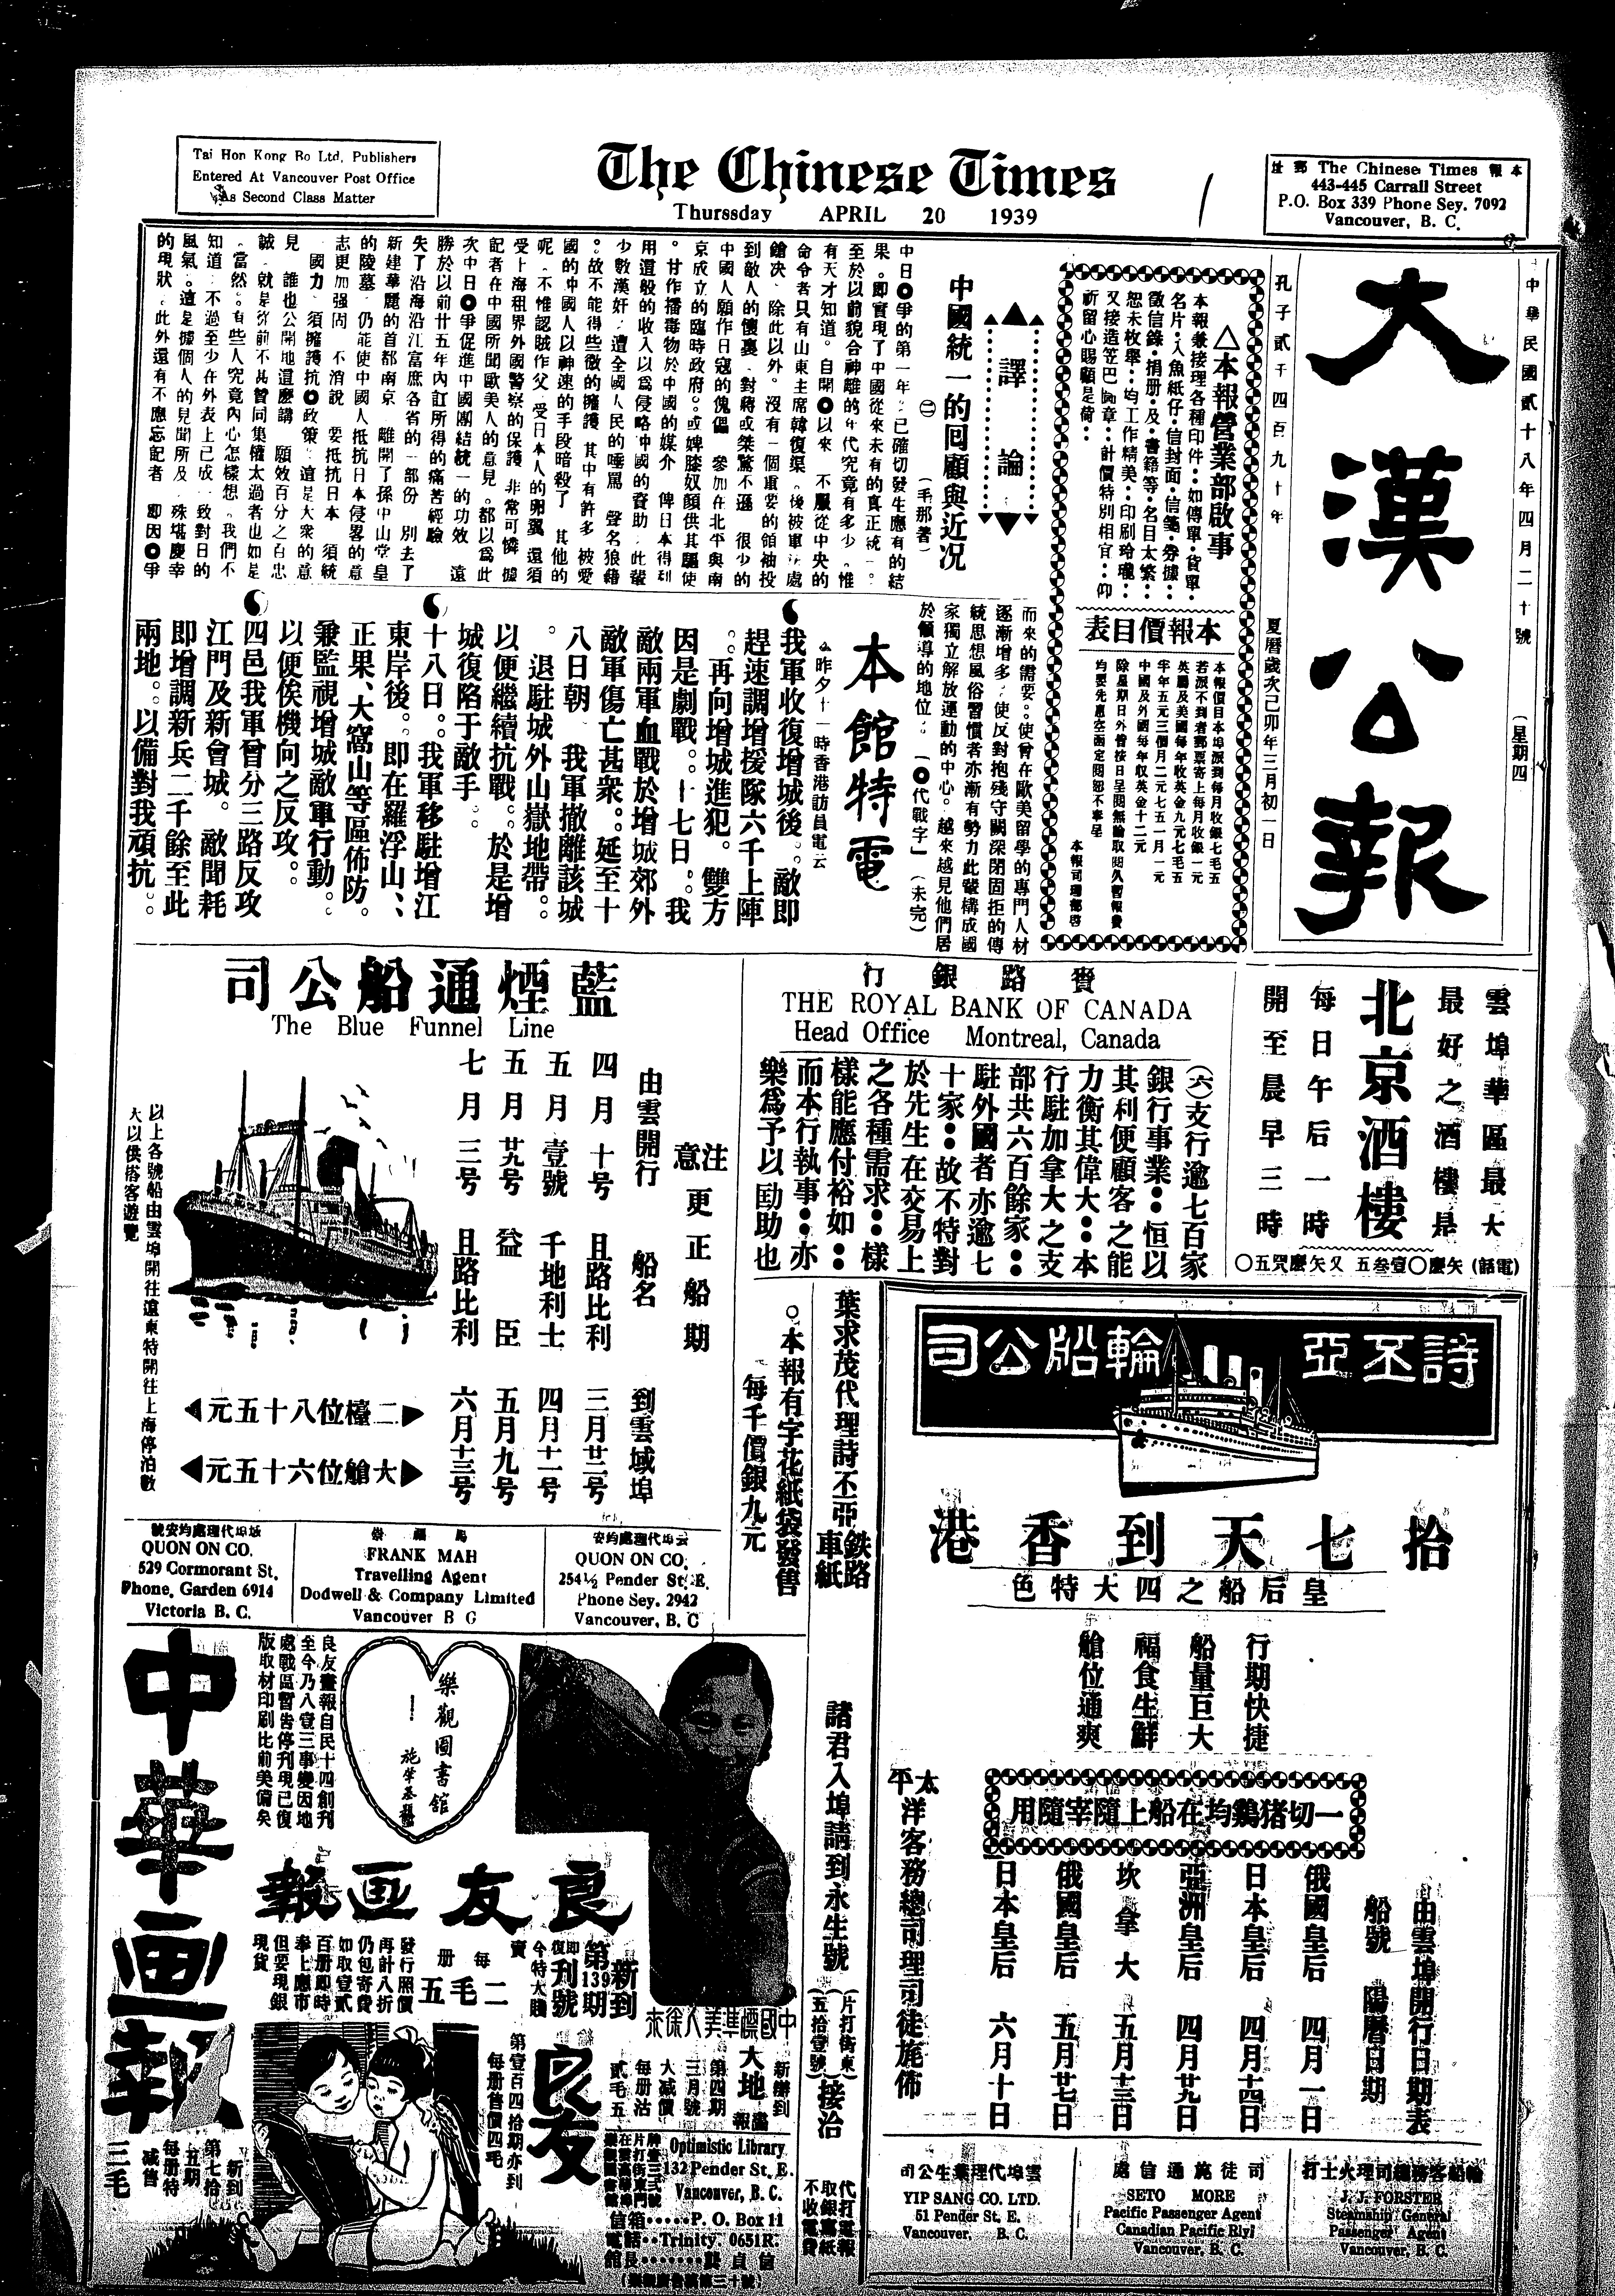 Tai Hon Kong Bo Ltd, Publishers
Entered At Vancouver Post Office
As Second Class Matter
The Chinese Times
Thurssday APRIL 20 1939
本報郵址
The Chinese Times
443-445 Carrall Street
P.O. Box 339 Phone Sey. 7092
Vancouver, B. C.
中華民國貳十八年四月二十號
(星期四)
大漢公報
孔子貳千四百九十年
夏曆歲次己卯年三月初一日
△本報營業部啟事
本報兼接理各種印件‧如傳單‧貨單‧
名片‧入魚紙仔‧信封面‧信箋‧券據‧
徵信錄‧捐册‧及‧書籍等‧名目太繁‧
恕未枚舉‧均工作精美‧印刷玲瓏‧
祈留心賜顧是荷‧
本報價目表
本報價目本埠派到每月收銀七毛五
若派不到者郵票寄上每月收銀一元
英屬及美國每年收英金九元七毛五
半年五元三個月二元七五一月一元
中國及外國每年收英金十二元
本報司理部啓
▲譯論▼
中國統一的回顧與近況
(二)
(毛那著)
中日〇爭的第一年‧已確切發生應有的結
果。即實現了中國從來未有的真正統一。
至於以前貌合神離的年代究竟有多少‧惟
有天才知道。自開〇以來 不服從中央的
命令者只有山東主席韓復榘。後被軍法處
鎗决 除此以外。沒有一個重要的領袖投
到敵人的懷裏 對蔣或桀驁不遜 很少的
中國人願作日寇的傀儡 參加在北平與南
京成立的臨時政府。或婢膝奴顏供其驅使
。甘作播毒物於中國的媒介 俾日本得到
用這般的收入以爲侵略中國的資助‧此輩
少數漢奸‧遭全國人民的唾罵 聲名狼藉
。故不能得些微的擁護 其中有許多 被愛
國的中國人以神速的手段暗殺了 其他的
呢 不惟認賊作父 受日本人的卵翼 還須
受上海租界外國警察的保護 非常可憐 據
記者在中國所聞歐美人的意見。都以爲此
次中日〇爭促進中國團結統一的功效 遠
勝於以前廿五年內訌所得的痛苦經驗
失了沿海沿江富庶各省的一部份 別去了
新建華麗的首都南京 離開了孫中山堂皇
的陵墓 仍能使中國人抵抗日本侵畧的意
志更加强固 不消說 要抵抗日本 須統
一國力 須擁護抗〇政策 這是大衆的意
見 誰也公開地這麽講 願效百分之百忠
誠‧就是從前不甚贊同集權太過者也如是
。當然。有些人究竟內心怎樣想。我們不
知道 不過至少在外表上已成一致對日的
風氣。這是據個人的見聞所及 殊堪慶幸
的現狀 此外還有不應忘記者 即因〇爭
而來的需要。使曾在歐美留學的專門人材
逐漸增多‧使反對抱殘守闕深閉固拒的傳
統思想風俗習慣者亦漸有勢力此輩構成國
家獨立解放運動的中心。越來越見他們居
於領導的地位‧「〇代戰字」(未完)
本館特電
△昨夕十一時香港訪員電云
我軍收復增城後。敵即
趕速調增援隊六千上陣
。再向增城進犯。雙方
因是劇戰。十七日。我
敵兩軍血戰於增城郊外
敵軍傷亡甚衆。延至十
八日朝 我軍撤離該城
。退駐城外山嶽地帶。
以便繼續抗戰。於是增
城復陷于敵手。
十八日。我軍移駐增江
東岸後。即在羅浮山、
正果、大窩山等區佈防。
兼監視增城敵軍行動。
以便俟機向之反攻。
四邑我軍曾分三路反攻
江門及新會城。敵聞耗
即增調新兵二千餘至此
兩地。以備對我頑抗。
藍煙通船公司
The Blue Funnel Line
注意更正船期
由雲開行 船名 到雲域埠
四月十号 且路比利 三月廿二号
五月壹號 千地利士 四月十一号
五月廿九号 益臣 五月九号
七月三号 且路比利 六月十三号
二檯位八十五元
大艙位六十五元
以上各號船由雲埠開往遠東特開往上海停泊數
大以供搭客遊覽
域埠代理處均安號
QUON ON CO.
529 Cormorant St.
Phone, Garden 6914
Victoria B. C.
FRANK MAH
Travelling Agent
Dodwell & Company Limited
Vancouver B C
云埠代理處均安
QUON ON CO.
254½ Pender St. E.
Phone Sey. 2942
Vancouver, B. C
賚路銀行
THE ROYAL BANK OF CANADA
Head Office Montreal, Canada
(六)支行逾七百家
銀行事業‧恒以
其利便顧客之能
力衡其偉大‧本
行駐加拿大之支
部共六百餘家‧
駐外國者亦逾七
十家‧故不特對
於先生在交易上
之各種需求‧樣
樣能應付裕如‧
而本行執事‧亦
樂爲予以助也
雲埠華區最大
最好之酒樓是
北京酒樓
每日午后一時
開至晨早三時
。本報有字花紙袋發售
每千價銀九元
葉求茂代理詩丕亞鉄路車紙
諸君入埠請到永生號(片打街東五拾壹號)接洽
代打電報
取銀寫紙
不收電費
詩丕亞輪船公司
拾七天到香港
皇后船之四大特色
行期快捷
船量巨大
福食生鮮
艙位通爽
一切猪鷄均在船上隨宰隨用
由雲埠開行日期表
船號 陽曆日期
俄國皇后 四月一日
日本皇后 四月十四日
亞洲皇后 四月廿九日
坎拿大 五月十三日
俄國皇后 五月廿七日
日本皇后 六月十日
太平洋客務總司理司徒旄佈
雲埠代理葉生公司
YIP SANG CO. LTD.
51 Pender St, E.
Vancouver, B. C.
司徒旄通信處
SETO MORE
Pacific Passenger Agent
Canadian Pacific Rlyl
Vancouver, B. C.
輪船客務總司理火士打
J. J. FORSTER
Steamship General
Passenger Agent
Vancouver, B. C.
中華画報
新到
第七拾五期
每册特减售
三毛
良友畫報自民十四創刊
至今乃八壹三事變因地
處戰區暫告停刊現已復
版取材印刷比前美備矣
樂觀圖書館
良友画報
新到
第139期
即復刊號
今特大賤賣
每册
二毛五
發行照價
再計八折
仍包寄費
如取壹貳
百册即時
奉上應市
但要現銀
現貨
中國標準美人徐來
良友
第壹百四拾期亦到
每册售價四毛
新辦到
大地畫報
第四期
三月號
大减價
每册沽
貳毛五
Optimistic Library
132 Pender St. E.
Vancouver, B. C.
信箱‧P. O. Box 11
電話‧Trinity. 0651R.
館長‧龔貞信